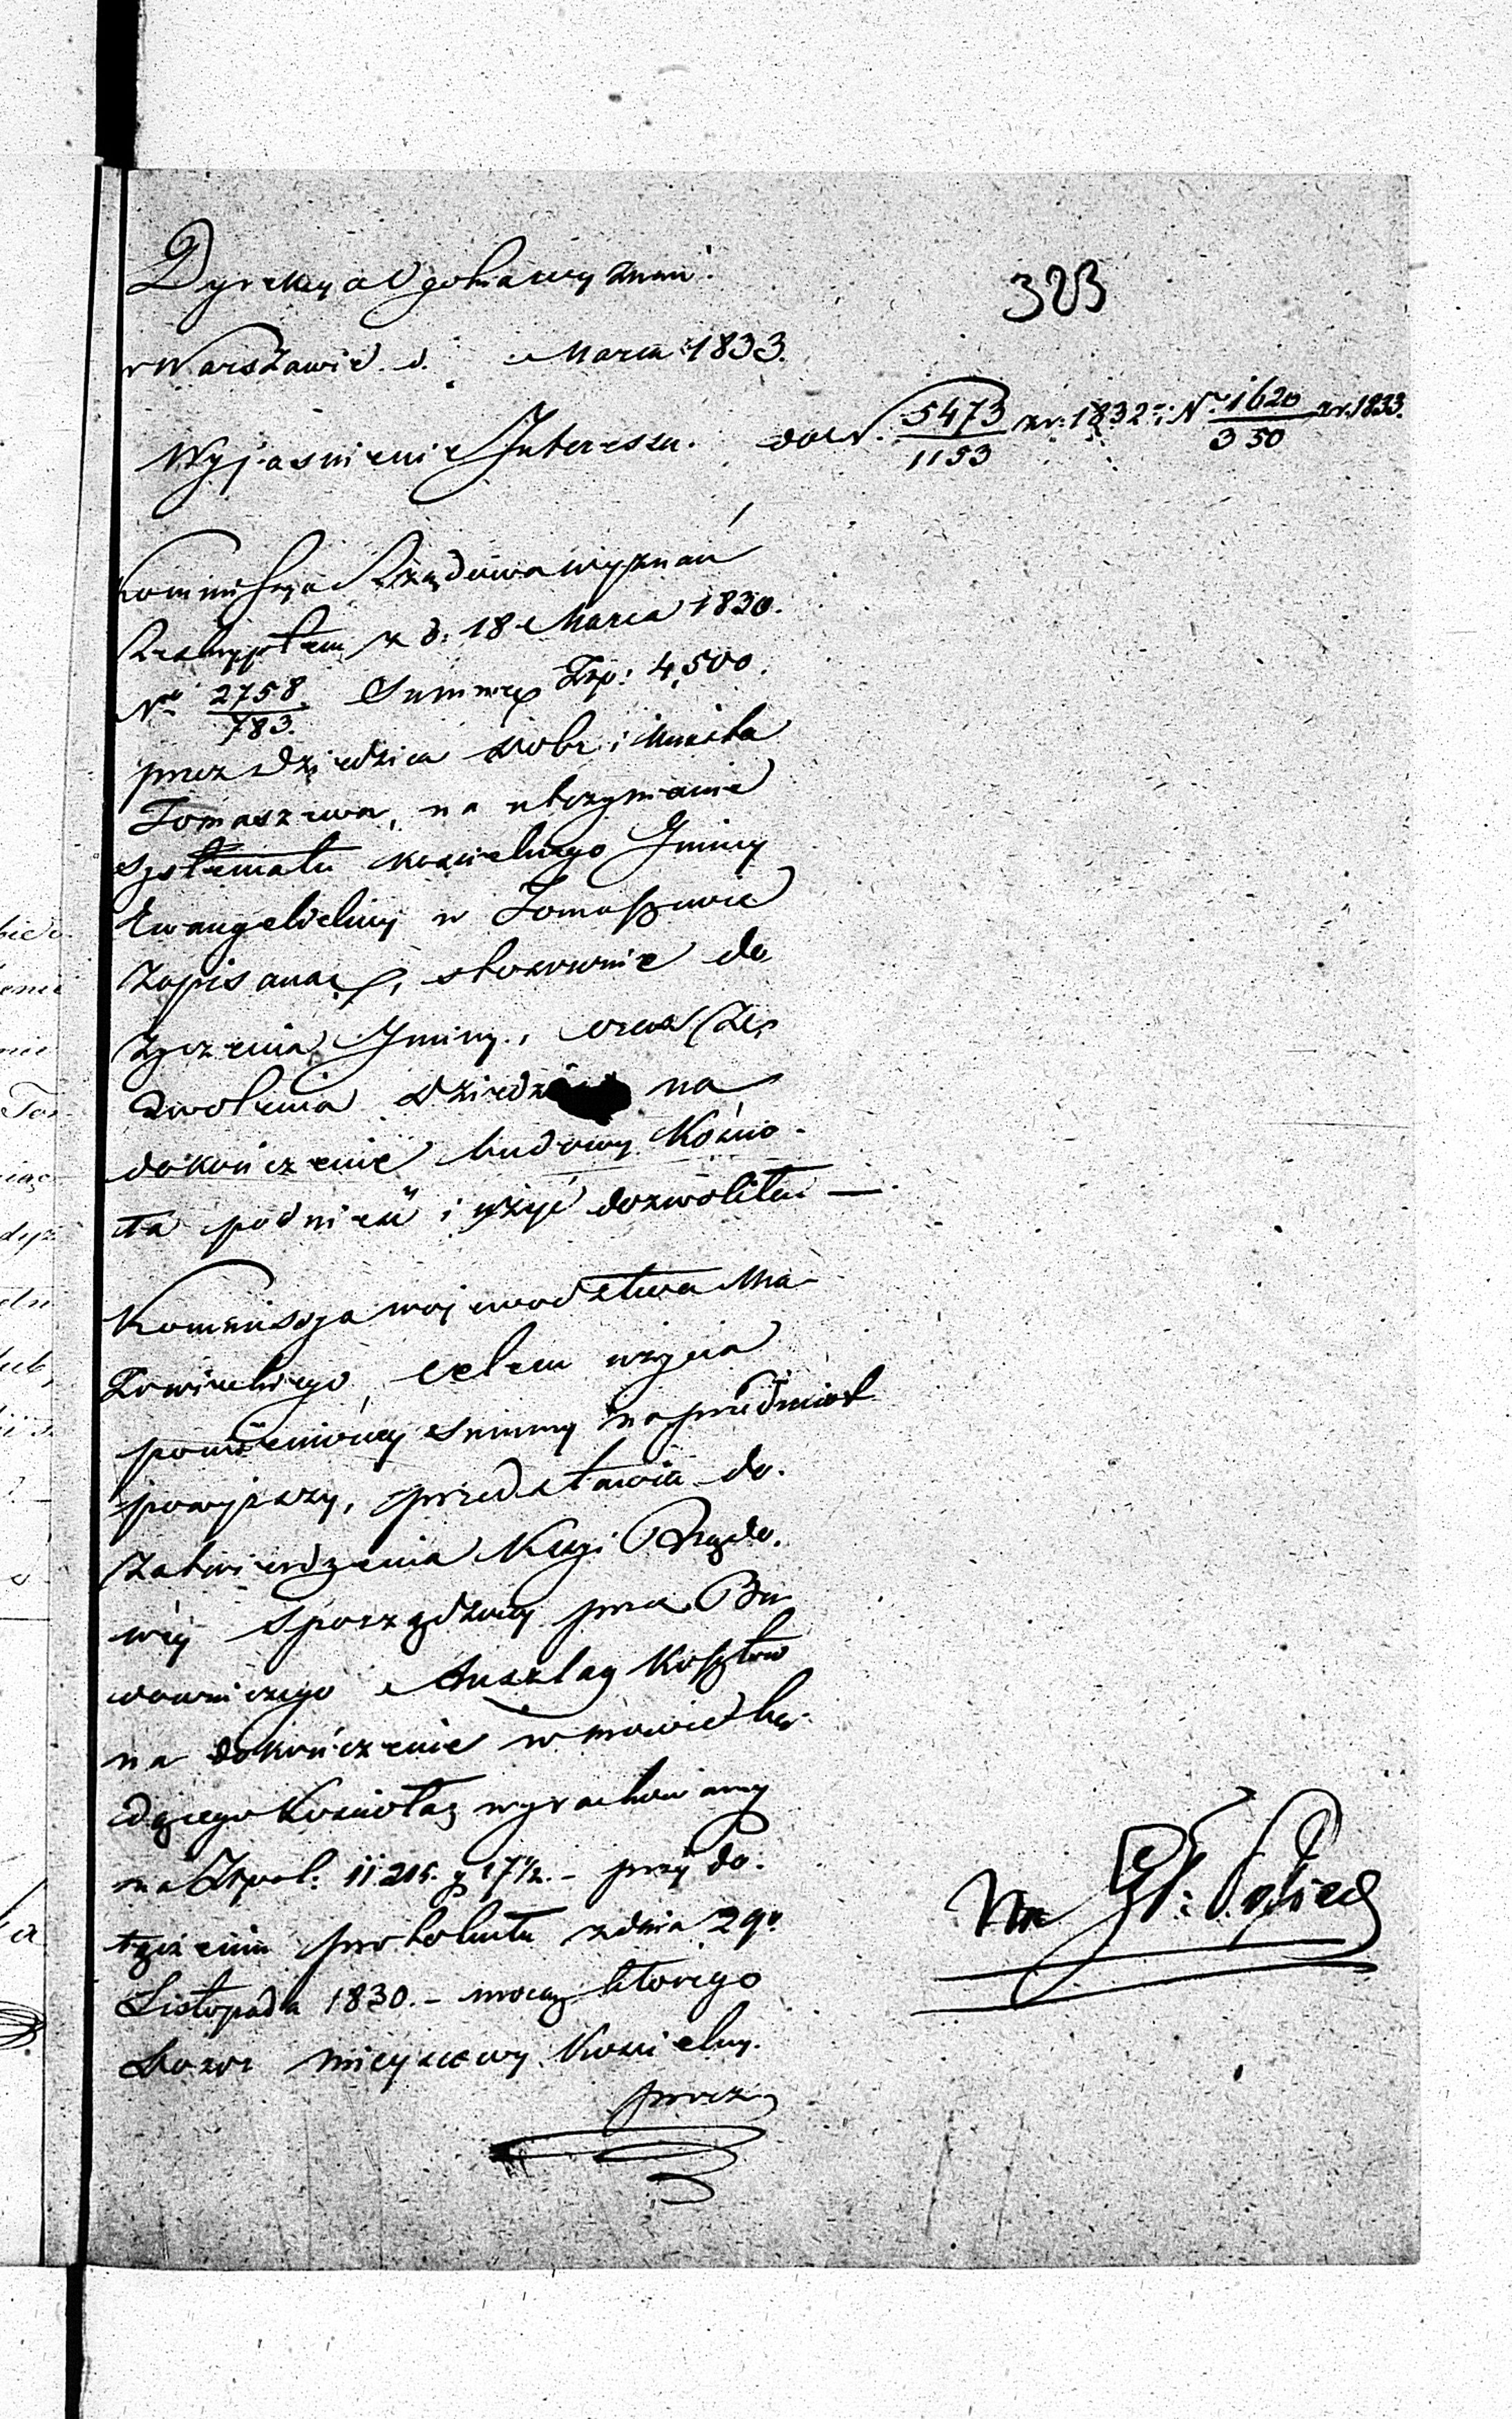 Dyrekcya Ogolna wyznań.
323
w Warszawie d. Marca 1833.
Wyjaśnienie Interessu.
do N. 5473/1153 z r. 1832 i N. 1620/350 z r. 1833.
Kommissya Rządowa wyznań
Reskryptem z d: 18 Marca 1830.
No 2758/783. Summę Złp: 4,500.
przez Dziedzica dobr i Miasta
Tomaszewa, na utrzymanie
systematu kościelnego Gminy
Ewangelickiey w Tomaszewie
zapisaną, stosownie do
życzenia Gminy, oraz ze
zwolenia na
dokończenie budowy Kościo-
ła podnieść i użyć dozwoliła —
Kommissya wojewodztwa Ma-
zowieckiego, celem użycia
pomienioney summy na przedmiot
powyższy, przedstawia do.
zatwierdzenia Kssyi Rządo.
wéy sporządzony przez Bu
downiczego Anszlag kosztow
na dokończenie w mowie bę-
dącego Kościoła, wyrachowany
na Złpol: 11.215. g 17½. - przy do.
łączeniu protokułu z dnia 29o
Listopada 1830. - mocą którego
Dozor mieyscowy Kościelny.
przez